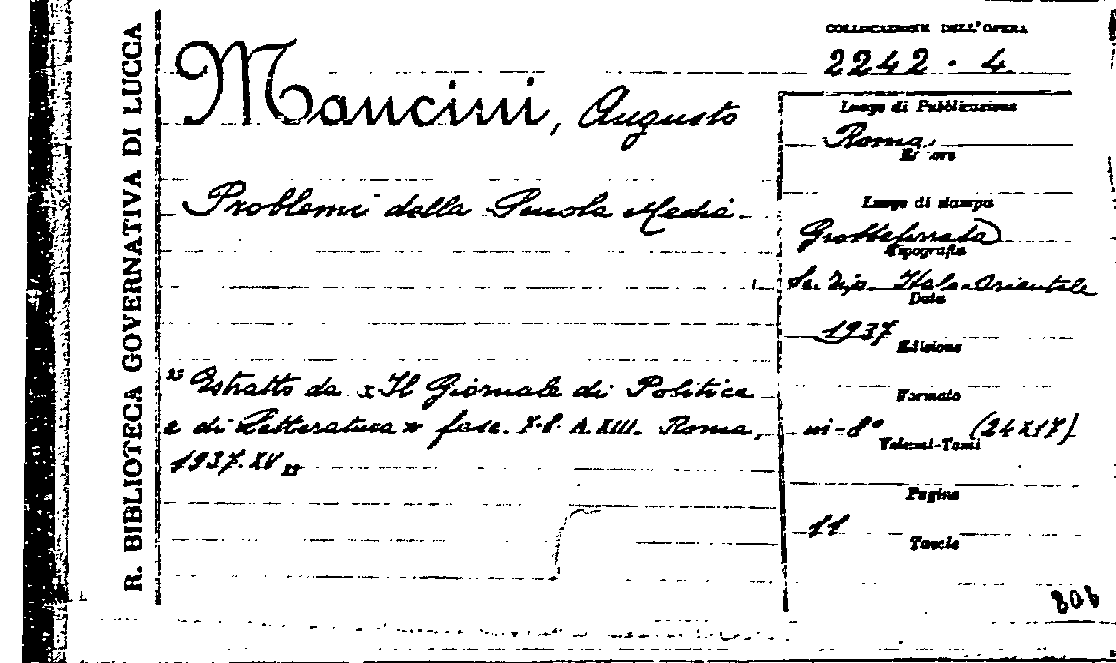 R. BIBLIOTECA GOVERNATIVA DI LUCCA
Mancini, Augusto
Problemi della Scuola Media.
"Estratto da «Il Giornale di Politica
e di Letteratura» fasc. 7-8. A. XIII. Roma,
1937.XV"
COLLOCAZIONE DELL'OPERA
2242 - 4
Luogo di Pubblicazione
Roma
Editore
Luogo di stampa
Grottaferrata
Tipografia
Sc. Tip. Italo-Orientale
Data
1937
Edizione
Formato
in-8° (24x17)
Volumi-Tomi
Pagine
11
Tavole